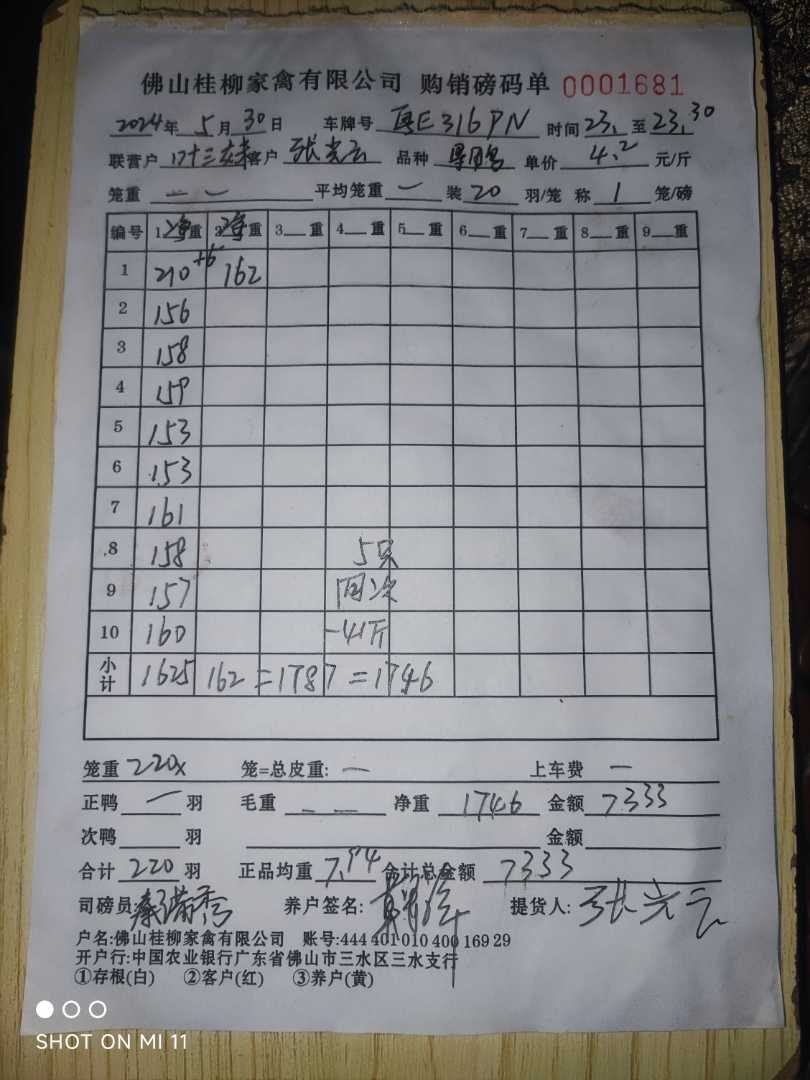 佛山桂柳家禽有限公司 购销磅码单 0001681
2024年 5月30日 车牌号 粤E316PN 时间23. 至23.30
联营户 客户 张光云 品种 单价 4.2 元/斤
笼重 — — 平均笼重 — 装 20 羽/笼 称 1 笼/磅
编号 1.净重 2.净重 3.重 4.重 5.重 6.重 7.重 8.重 9.重
1 210 +6 162
2 156
3 158
4 159
5 153
6 153
7 161
8 158 5只
9 157 次
10 160 -41斤
小计 1625 162 =1787 =1746
笼重 220x 笼=总皮重: — 上车费 —
正鸭 — 羽 毛重 — — 净重 1746 金额 7333
次鸭 羽 金额
合计 220 羽 正品均重 7.94 合计总金额 7333
司磅员: 养户签名: 提货人: 张光云
户名:佛山桂柳家禽有限公司 账号:444 401 010 400 169 29
开户行:中国农业银行广东省佛山市三水区三水支行
①存根(白) ②客户(红) ③养户(黄)
SHOT ON MI 11